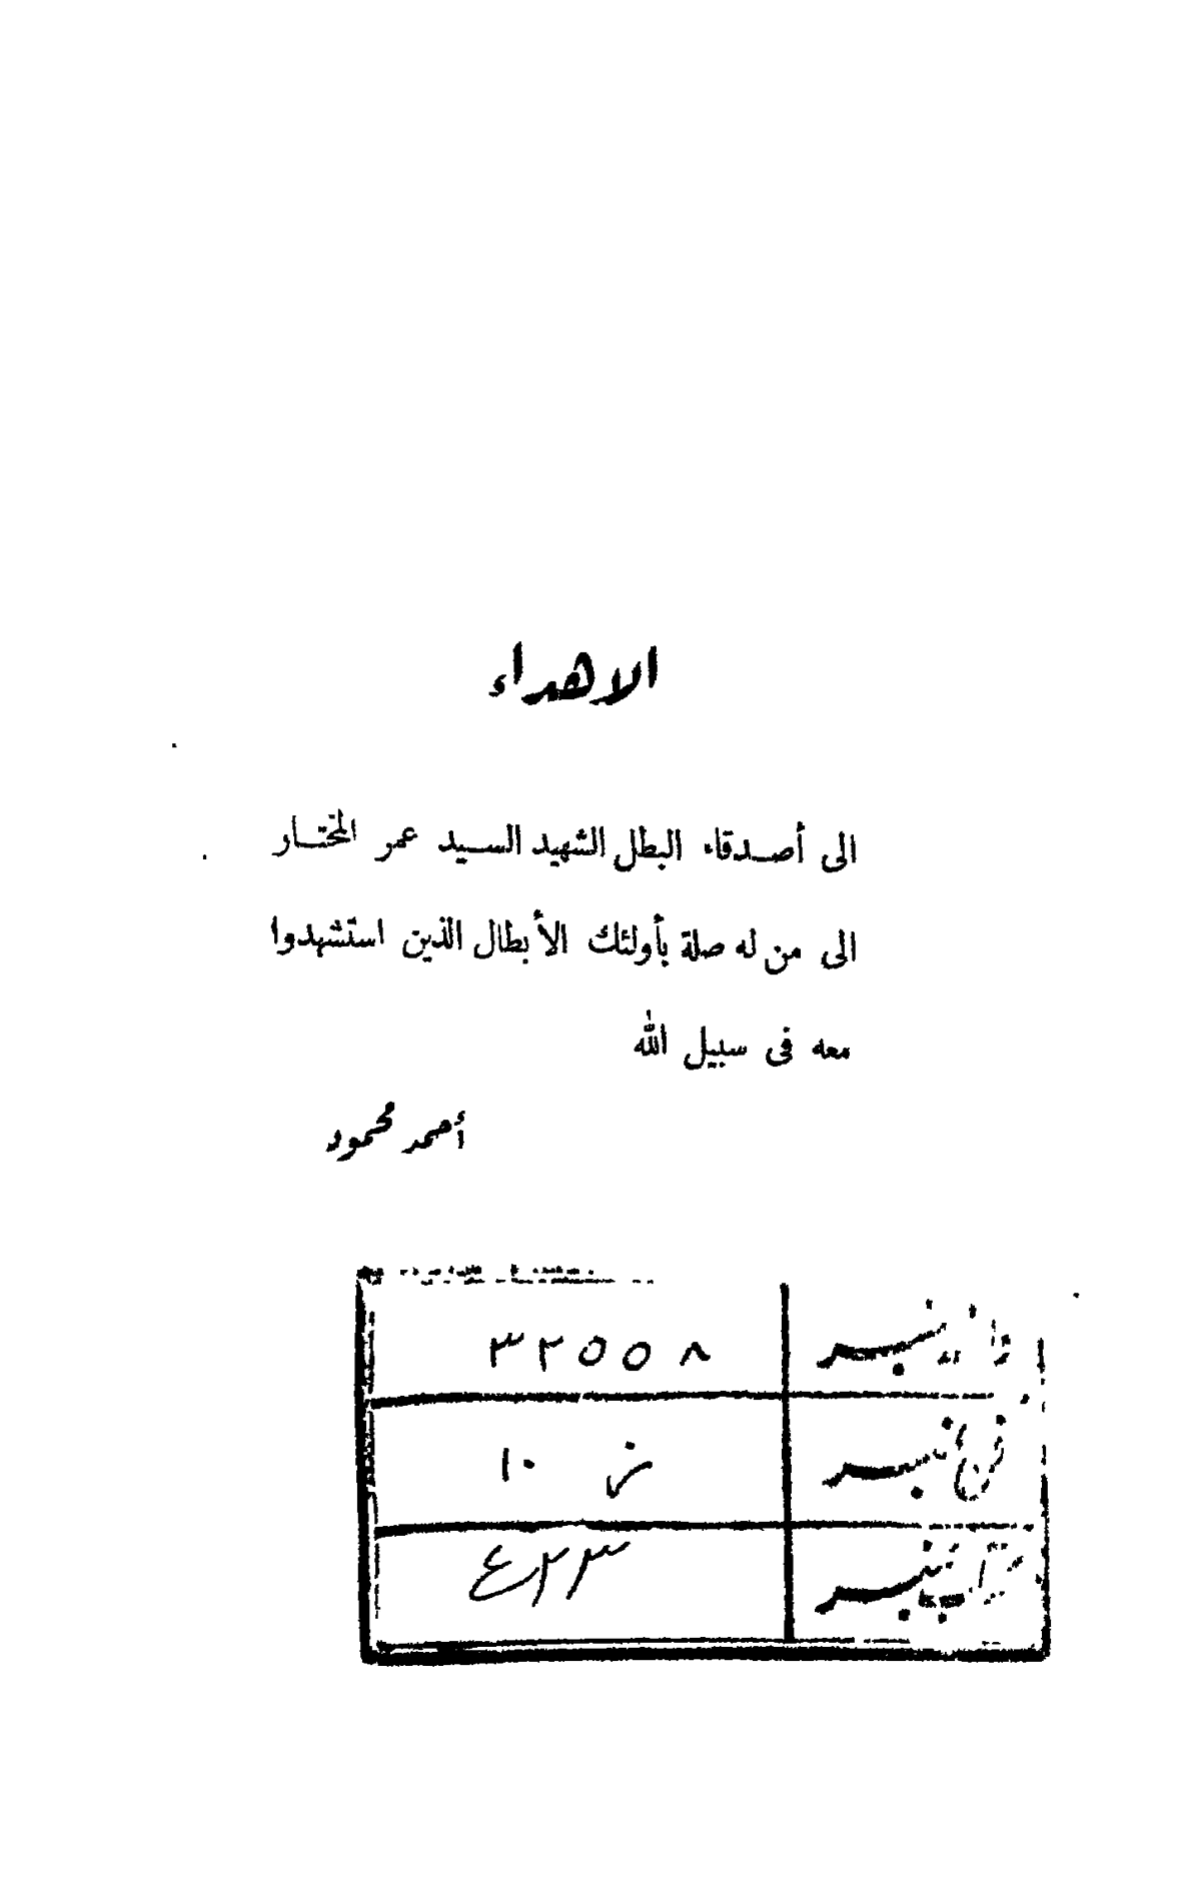 الاهداء
الى أصدقاء البطل الشهيد السيد عمر المختار
الى من له صلة بأولئك الأبطال الذين استشهدوا
معه فى سبيل الله
أحمد محمود
نمبر ٣٢٥٥٨
فن نمبر ز ١٠
نمبر ٤٢٣